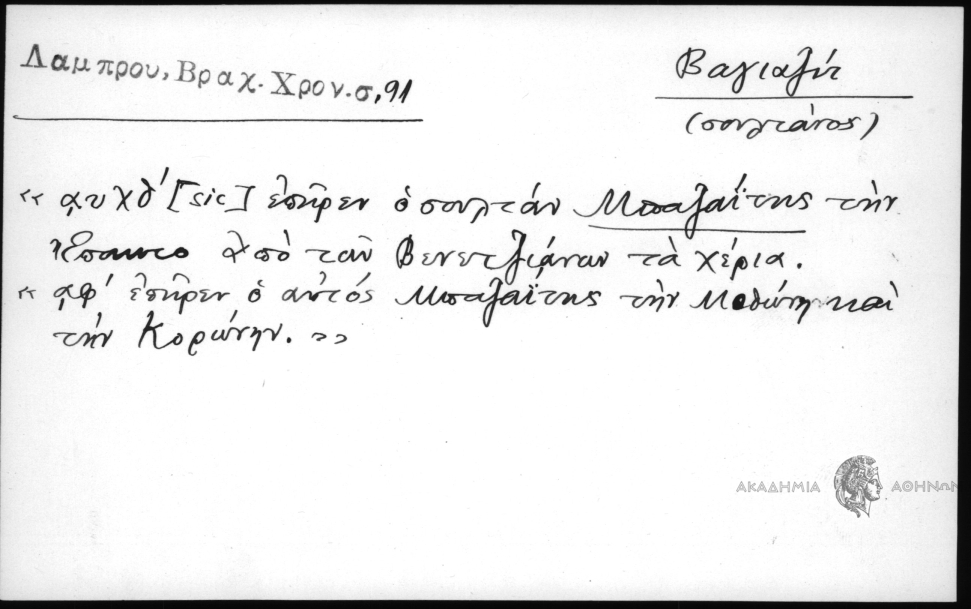 Λαμπρου, Βραχ. Χρον. σ, 91
Βαγιαζίτ
(σουλτάνος)
« ͵αυχθ´ [sic] ἐπῆρεν ὁ σουλτάν Μπαζαΐτης τὴν
Ἔπακτο ἀπὸ τῶν Βενετζιάνων τὰ χέρια.
« ͵αφ´ ἐπῆρεν ὁ αὐτός Μπαζαΐτης τὴν Μεθώνη καὶ
τὴν Κορώνην. »
ΑΚΑΔΗΜΙΑ ΑΘΗΝΩΝ